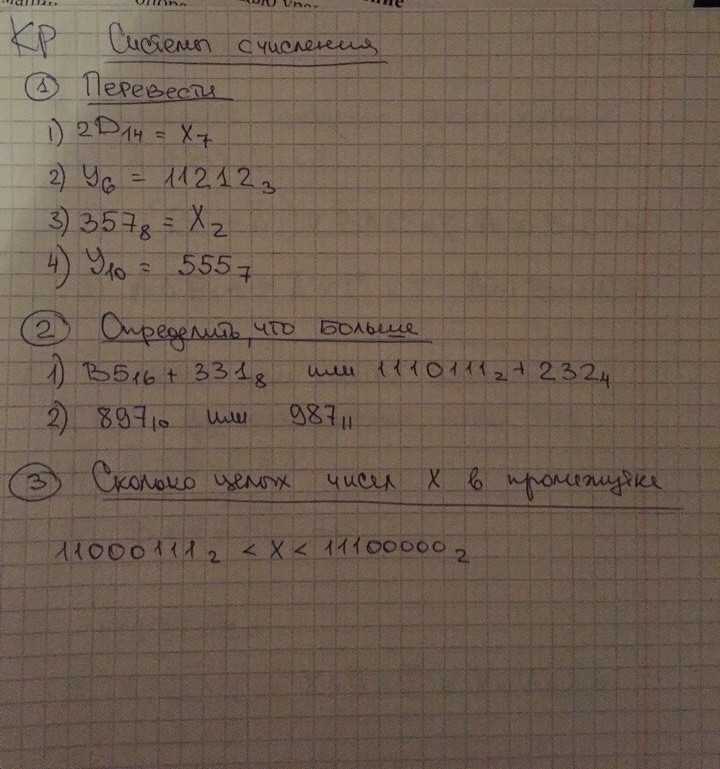 КР Системы счисления
① Перевести
1) 2D₁₄ = X₇
2) У₆ = 11212₃
3) 357₈ = X₂
4) У₁₀ = 555₇
② Определить, что больше
1) B5₁₆ + 331₈ или 1110111₂ + 232₄
2) 897₁₀ или 987₁₁
③ Сколько целых чисел X в промежутке
11000111₂ < X < 11100000₂